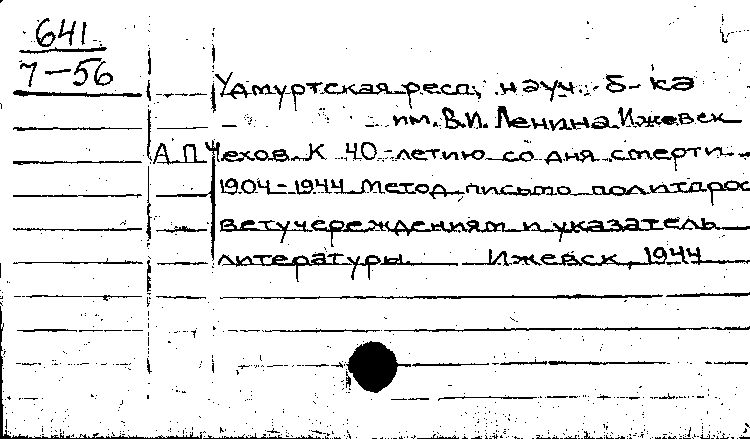 641
7-56
Удмуртская респ. науч. б-ка
им. В.И. Ленина. Ижевск
А.П. Чехов. К 40-летию со дня смерти.
1904-1944. Метод. письмо политпрос
ветучереждениям и указатель
литературы. Ижевск, 1944